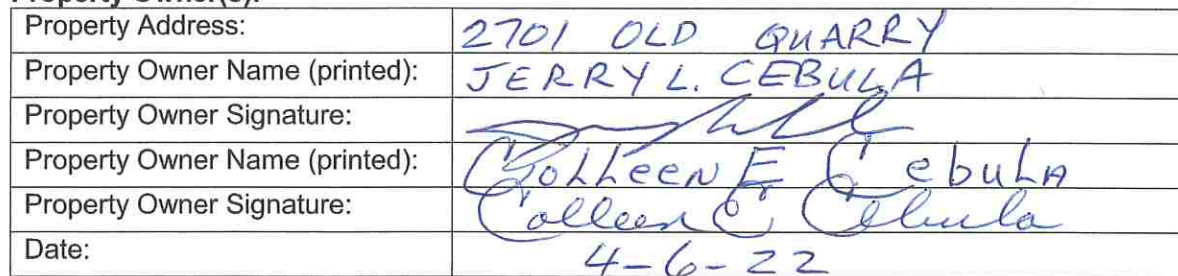 Property Owner(s):
Property Address: 2701 OLD QUARRY
Property Owner Name (printed): JERRY L. CEBULA
Property Owner Signature:
Property Owner Name (printed): Colleen E Cebula
Property Owner Signature: Colleen E Cebula
Date: 4-6-22